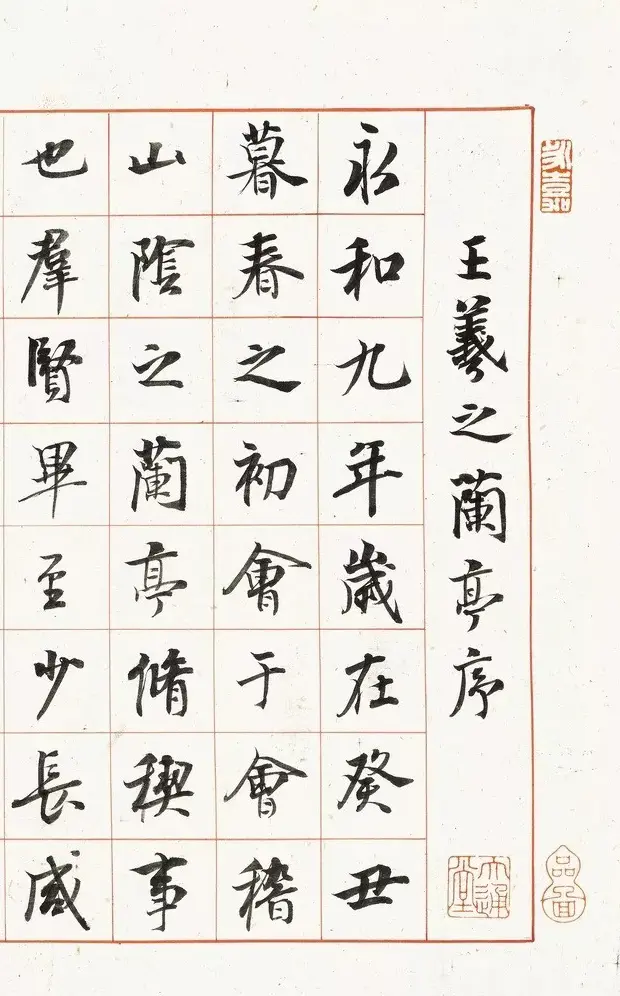 王羲之蘭亭序
永和九年歲在癸丑
暮春之初會于會稽
山陰之蘭亭脩稧事
也羣賢畢至少長咸